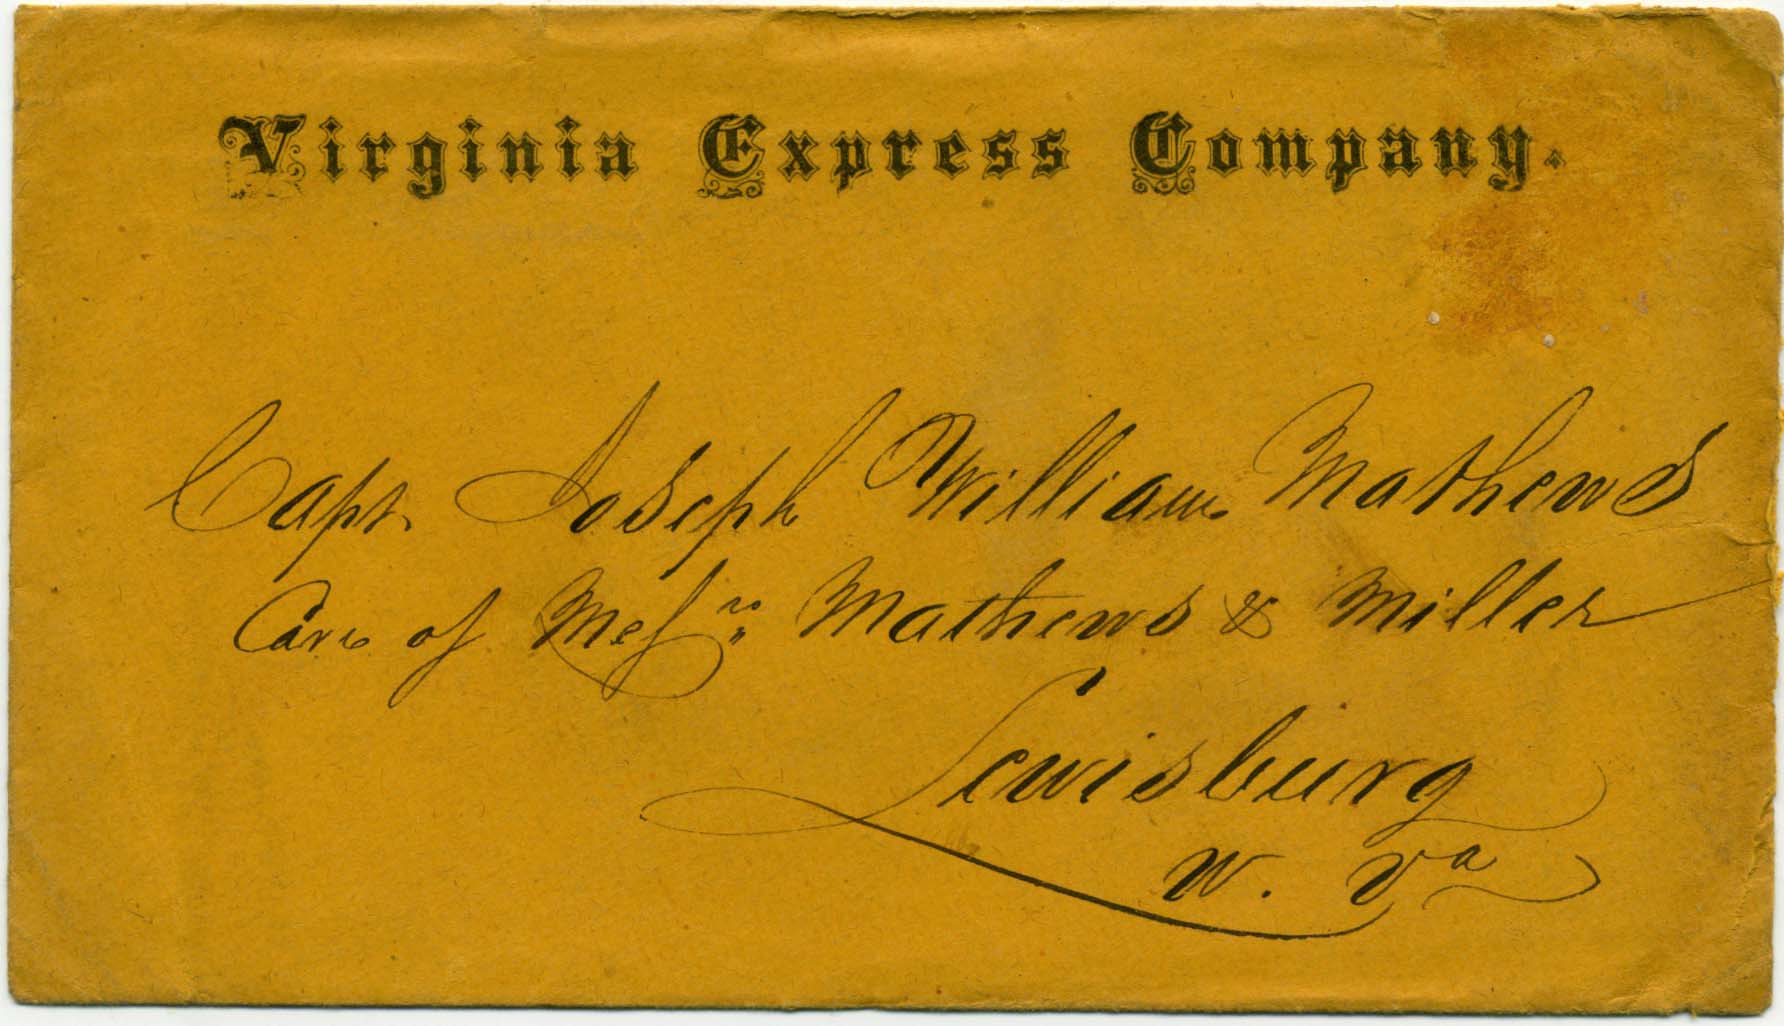 Virginia Express Company.
Capt. Joseph William Mathews
Care of Messrs Mathews & Miller
Lewisburg
W. Va